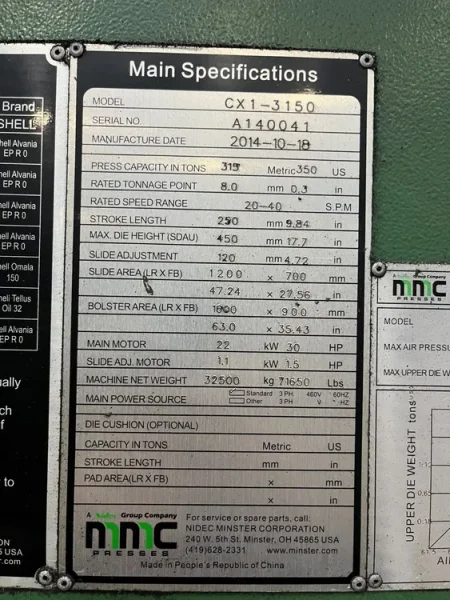 Main Specifications
MODEL CX1-3150
SERIAL NO. A140041
MANUFACTURE DATE 2014-10-18
PRESS CAPACITY IN TONS 315 Metric 350 US
RATED TONNAGE POINT 8.0 mm 0.3 in
RATED SPEED RANGE 20-40 S.P.M
STROKE LENGTH 250 mm 9.84 in
MAX. DIE HEIGHT (SDAU) 450 mm 17.7 in
SLIDE ADJUSTMENT 120 mm 4.72 in
SLIDE AREA(LR X FB) 1200 × 700 mm
47.24 × 27.56 in
BOLSTER AREA (LR X FB) 1600 × 900 mm
63.0 × 35.43 in
MAIN MOTOR 22 kW 30 HP
SLIDE ADJ. MOTOR 1.1 kW 1.5 HP
MACHINE NET WEIGHT 32500 kg 71650 Lbs
MAIN POWER SOURCE Standard 3 PH 460V 60HZ
Other 3 PH V HZ
DIE CUSHION (OPTIONAL)
CAPACITY IN TONS Metric US
STROKE LENGTH mm in
PAD AREA(LR X FB) × mm
× in
A Nidec Group Company
mmc
PRESSES
For service or spare parts, call:
NIDEC MINSTER CORPORATION
240 W. 5th St. Minster, OH 45865 USA
(419)628-2331 www.minster.com
Made in People's Republic of China
Brand
SHELL
hell Alvania
EP R 0
hell Alvania
EP R 0
hell Alvania
EP R 0
hell Alvania
EP R 0
hell Omala
150
hell Tellus
Oil 32
hell Alvania
EP R 0
ually
ch
f
to
ON
5 USA
om
Group Company
mmc
PRESSES
MODEL
MAX AIR PRESSU
MAX UPPER DIE W
UPPER DIE WEIGHT tons